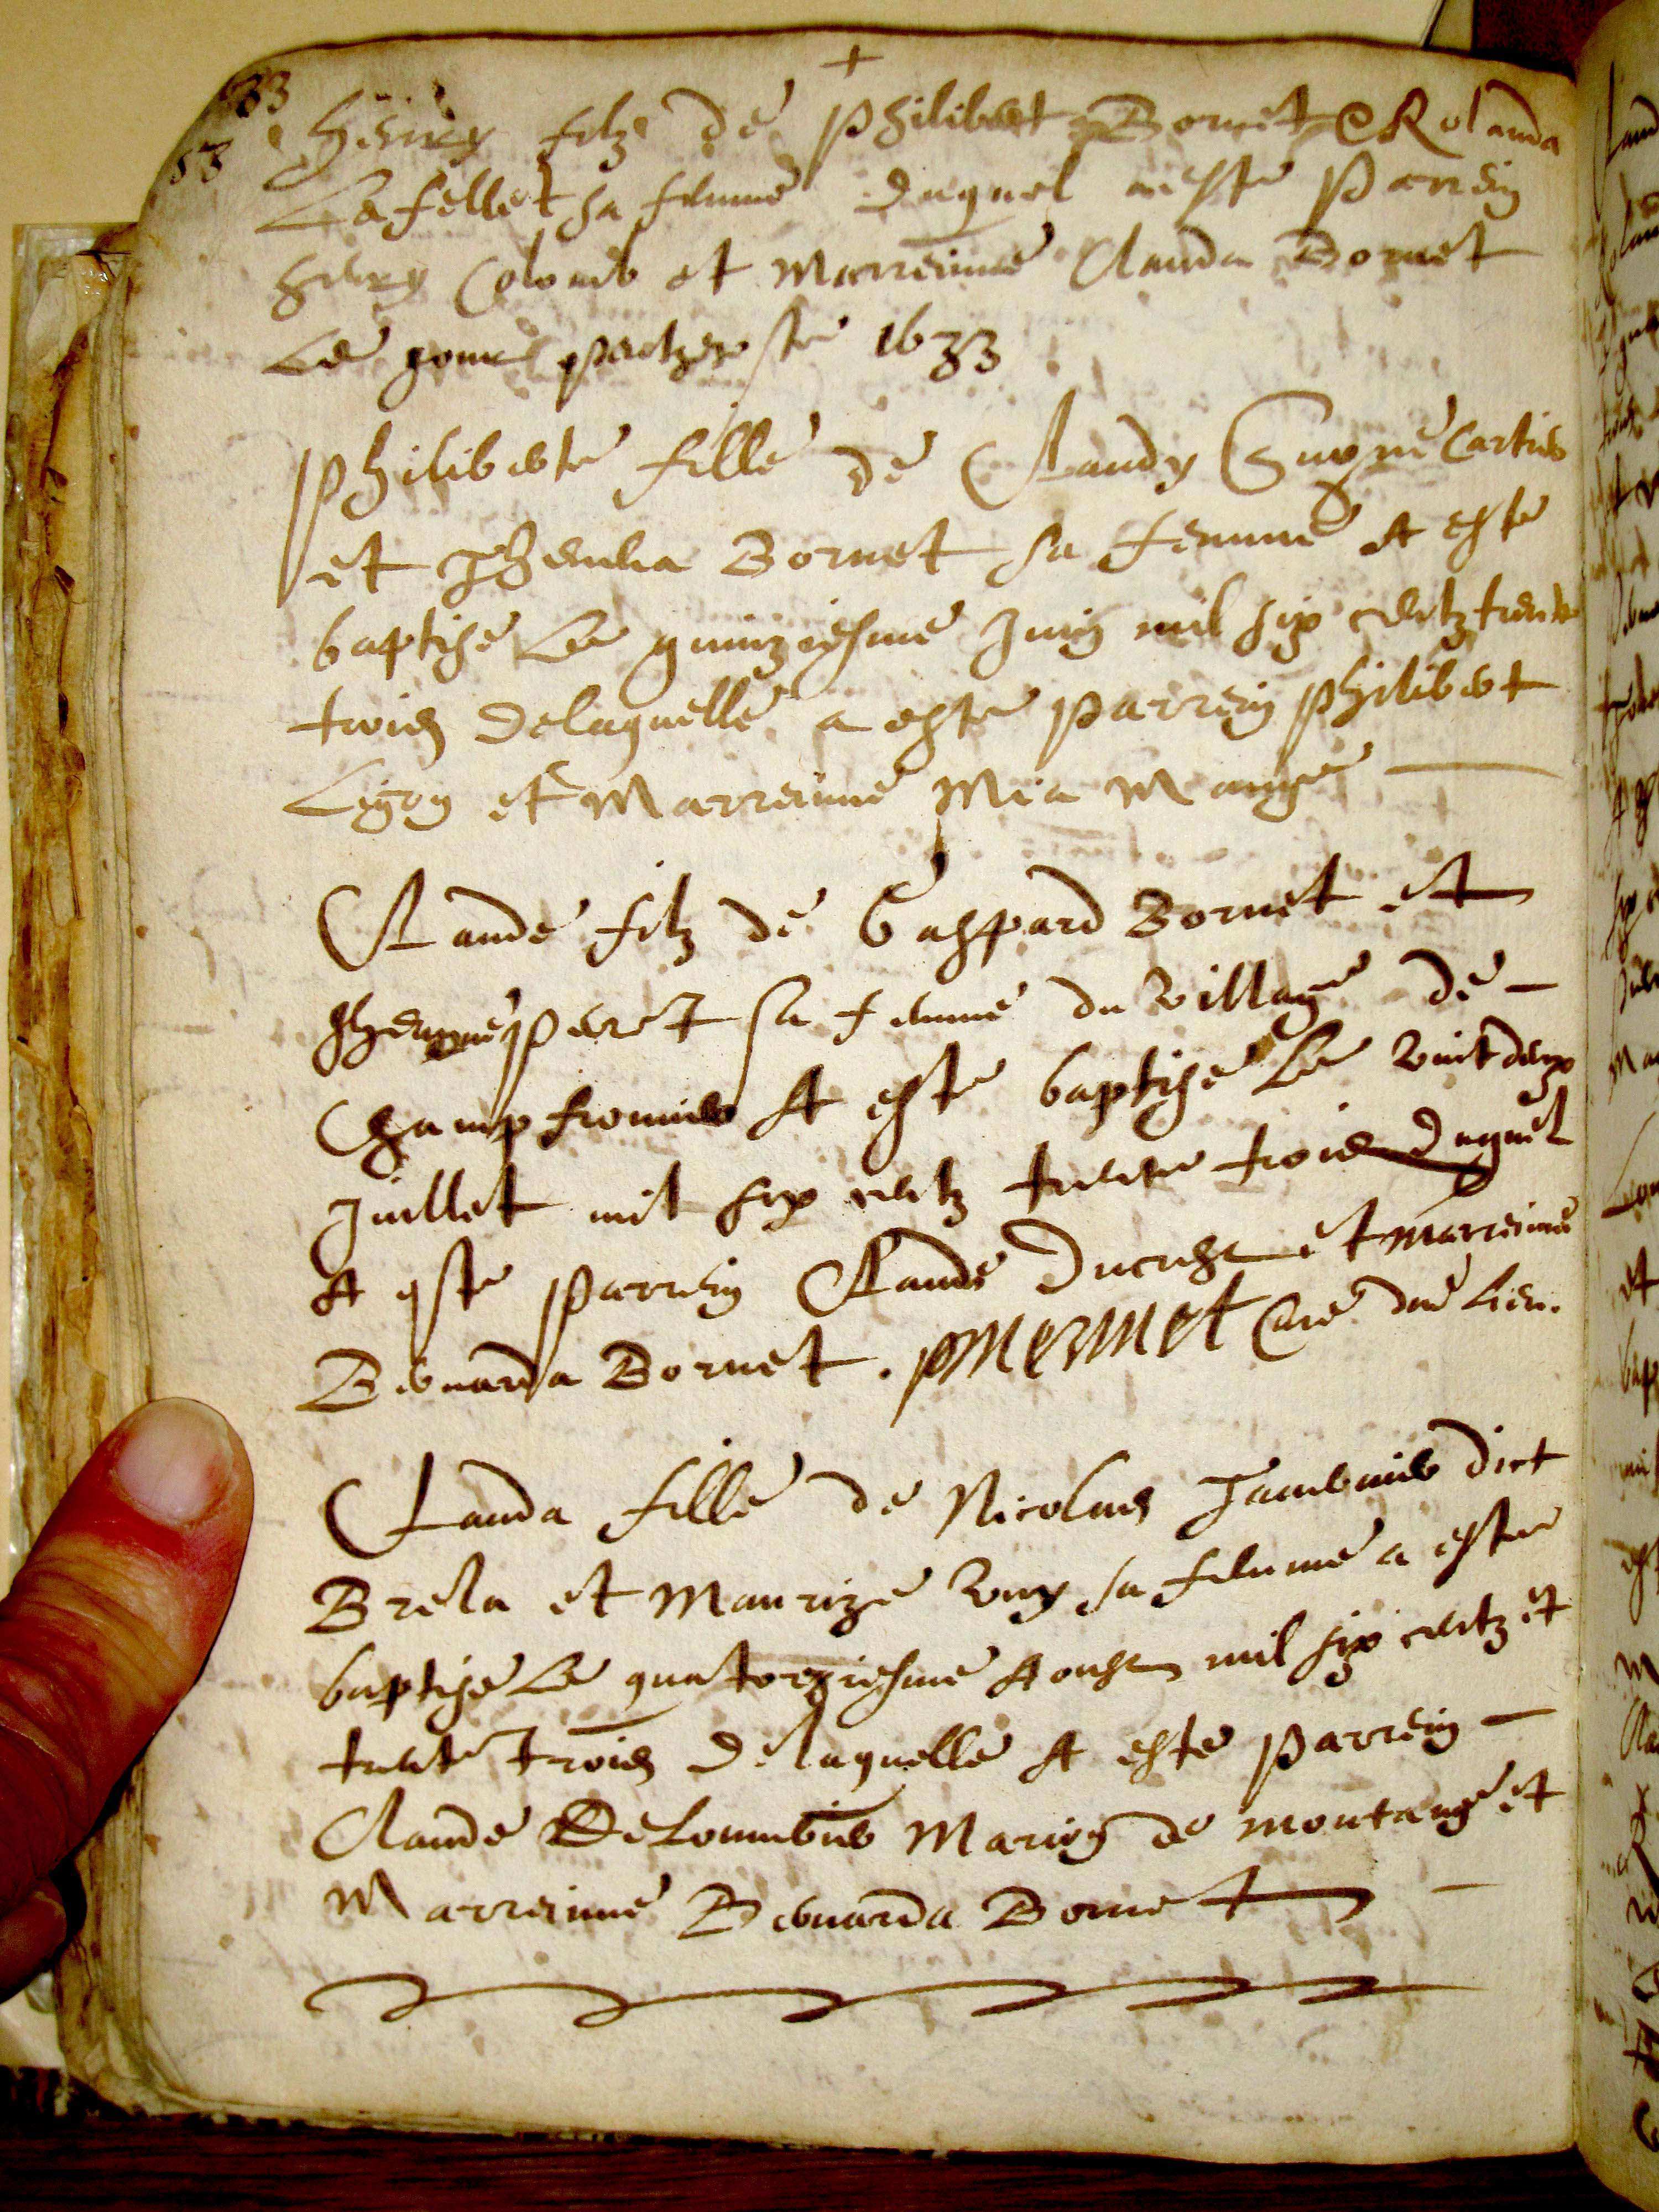 +
33
53
henry filz de philibert Bornet & Rolanda
La fellet sa femme duquel a este parrein
henry Colomb et marreinne Clauda Bornet
Le jour pentecoste 1633
philiberte fille de Claudy Cartier
et Bornet sa femme A este
baptise Le quinziesme Juing mil six centz trente
trois delaquelle a este parrein philibert
Ligon et Marreinne Mia
Claude filz de Gaspard Bornet et
sa femme du village de -
Champfromier A este baptise Le vint deux
Juillet mil six centz trente trois duquel
A este parrein Claude Ducrest et marreinne
Bernarda Bornet . pmermet Cure dud lieu.
Clauda fille de Nicolas Tavernier dict
Brela et Maurize sa femme a este
baptise Le quatorziesme Aoust mil six centz et
trente trois delaquelle A este parrein -
Claude de montange et
Marreinne Bernarda Bornet